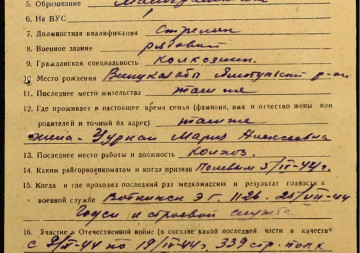 5. Образование Малограмотный
6. На ВУС
7. Должностная квалификация Стрелок
8. Военное звание рядовой
9. Гражданская специальность колхозник
10. Место рождения Винницкая обл
11. Последнее место жительства там же
12. Где проживает в настоящее время семья (фамилия, имя и отчество жены или
родителей и точный адрес) там же
жена - Мария Алексеевна
13. Последнее место работы и должность колхоз
14. Каким райгорвоенкоматом и когда призван Полевым 5/IV-44г.
15. Когда и где проходил последний раз медкомиссию и результат годности к
военной службе Воткинск ЭГ 1126. 25/VII-44
Годен к строевой службе
16. Участие в Отечественной войне (в составе какой последней части в качестве
с 9/IV-44 по 19/IV-44г. 339 стр. полк